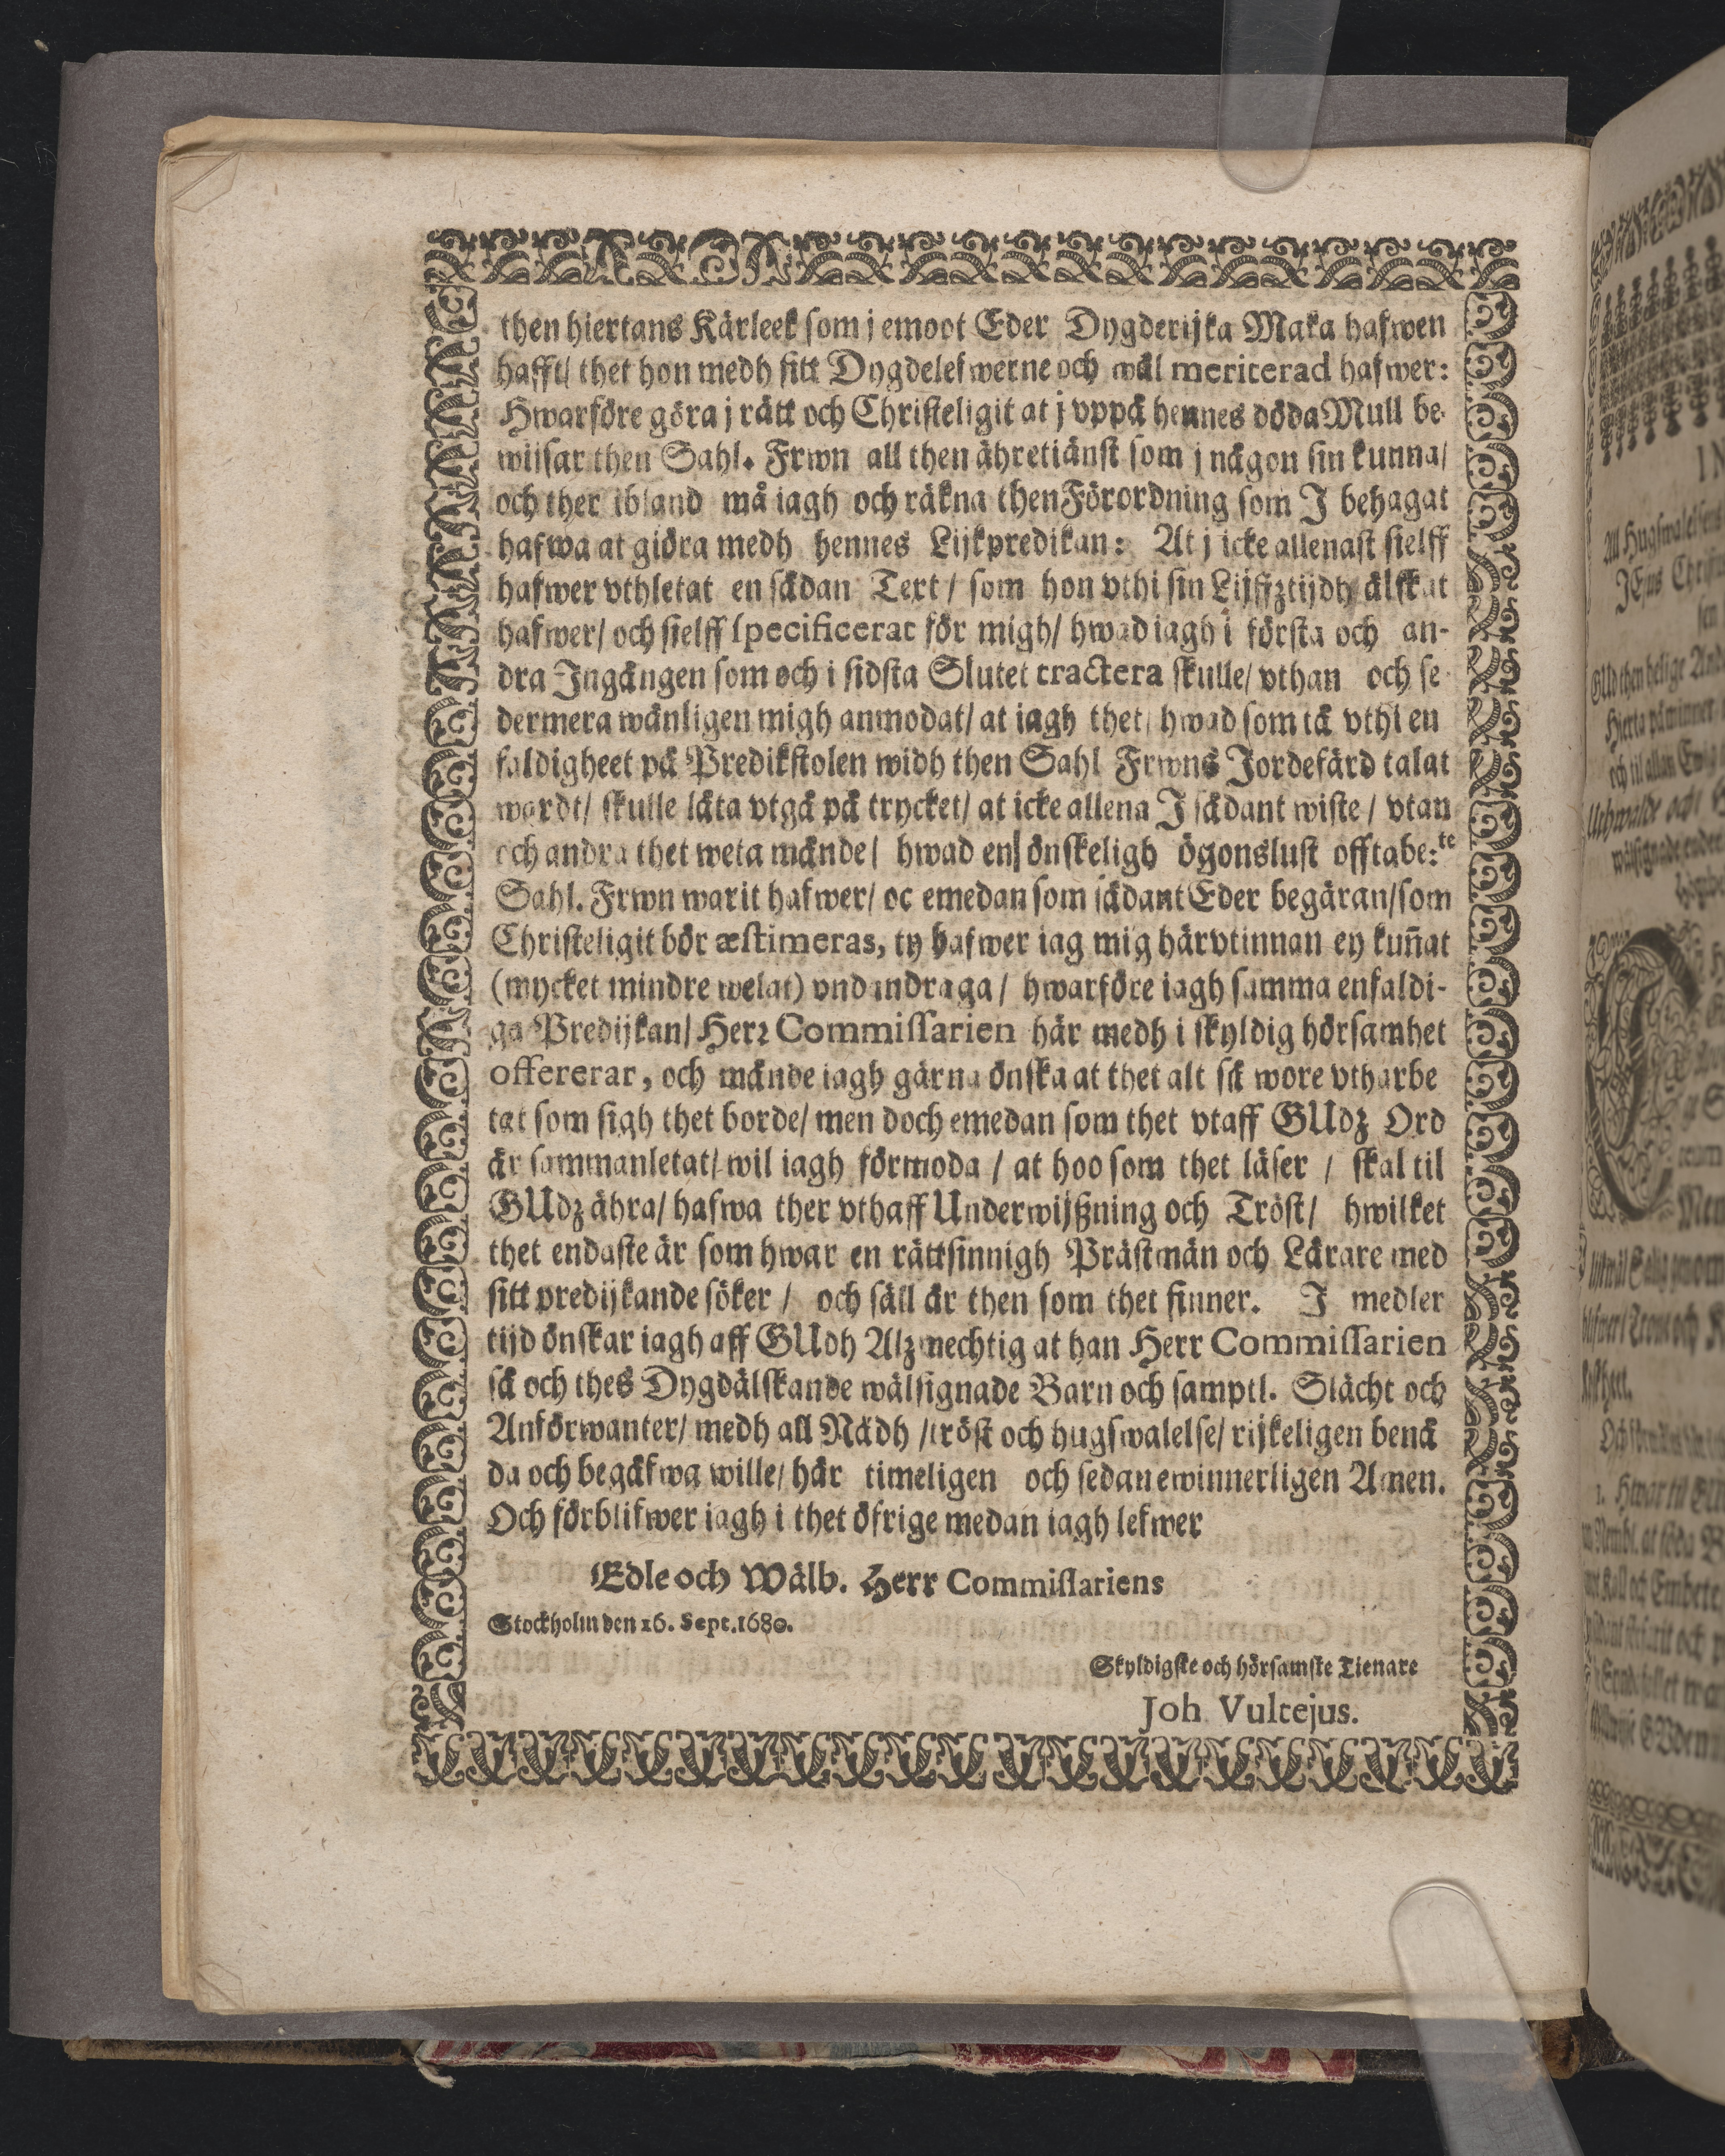 then hiertans Kärleek som j emoot Eder Dygderijka Maka hafwen
hafft/ thet hon medh sitt Dygdelefwerne och wäl meriterad hafwer:
Hwarföre göra j rätt och Christeligit at j vppå hennes döda Mull be-
wijsar then Sahl. Frwn all then ähretiänst som j någon sin kunna/
och ther ibland må iagh och räkna then Förordning som I behagat
hafwa at giöra medh hennes Lijkpredikan: At j icke allenast sielff
hafwer vthletat en sådan Text / som hon vthi sin Lijffztijdh älskat
hafwer/ och sielff specificerat för migh/ hwad iagh i första och an-
dra Ingången som och i sidsta Slutet tractera skulle/ vthan och se
dermera wänligen migh anmodat/ at iagh thet/ hwad som tå vthi en
faldigheet på Predikstolen widh then Sahl Frwns Jordefärd talat
wardt/ skulle låta vtgå på trycket/ at icke allena I sådant wiste / vtan
och andra thet weta månde/ hwad en önskeligh ögonslust offtabe:te
Sahl. Frwn warit hafwer/ oc emedan som sådant Eder begäran/ som
Christeligit bör æstimeras, ty hafwer iag mig härvtinnan ey kun̄at
(mycket mindre welat) vndandraga / hwarföre iagh samma enfaldi-
ga Predijkan/ Herr Commissarien här medh i skyldig hörsamhet
offererar, och månde iagh gärna önska at thet alt så wore vtharbe
tat som sigh thet borde/ men doch emedan som thet vtaff GUdz Ord
är sammanletat/ wil iagh förmoda / at hoo som thet läser / skal til
GUdz ähra/ hafwa ther vthaff Underwijßning och Tröst/ hwilket
thet endaste är som hwar en rättsinnigh Prästmän och Lärare med
sitt predijkande söker / och säll är then som thet finner. I medler
tijd önskar iagh aff GUdh Alzmechtig at han Herr Commissarien
så och thes Dygdälskande wälsignade Barn och samptl. Slächt och
Anförwanter/ medh all Nådh / tröst och hugswalelse/ rijkeligen benå
da och begåfwa wille/ här timeligen och sedan ewinnerligen Amen.
Och förblifwer iagh i thet öfrige medan iagh lefwer
Edle och Wälb. Herr Commissariens
Stockholm den 16. Sept. 1680.
Skyldigste och hörsamste Tienare
Joh Vultejus.